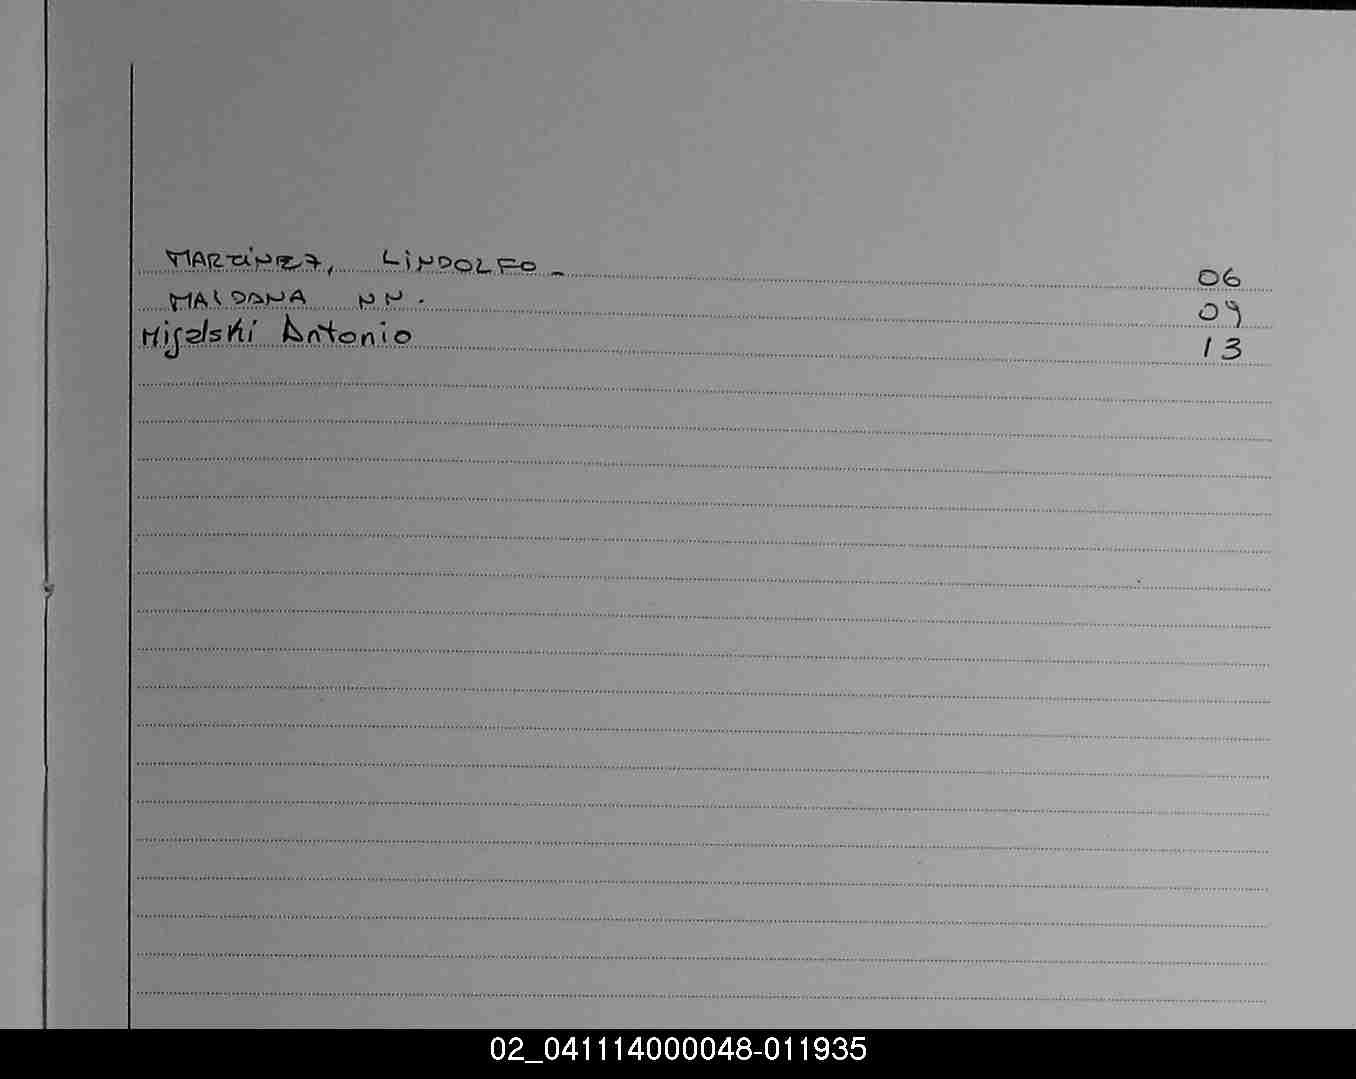 MARTÍNEZ, LINDOLFO - 06
MALDANA NN. 09
Misalski Antonio 13
02_041114000048-011935